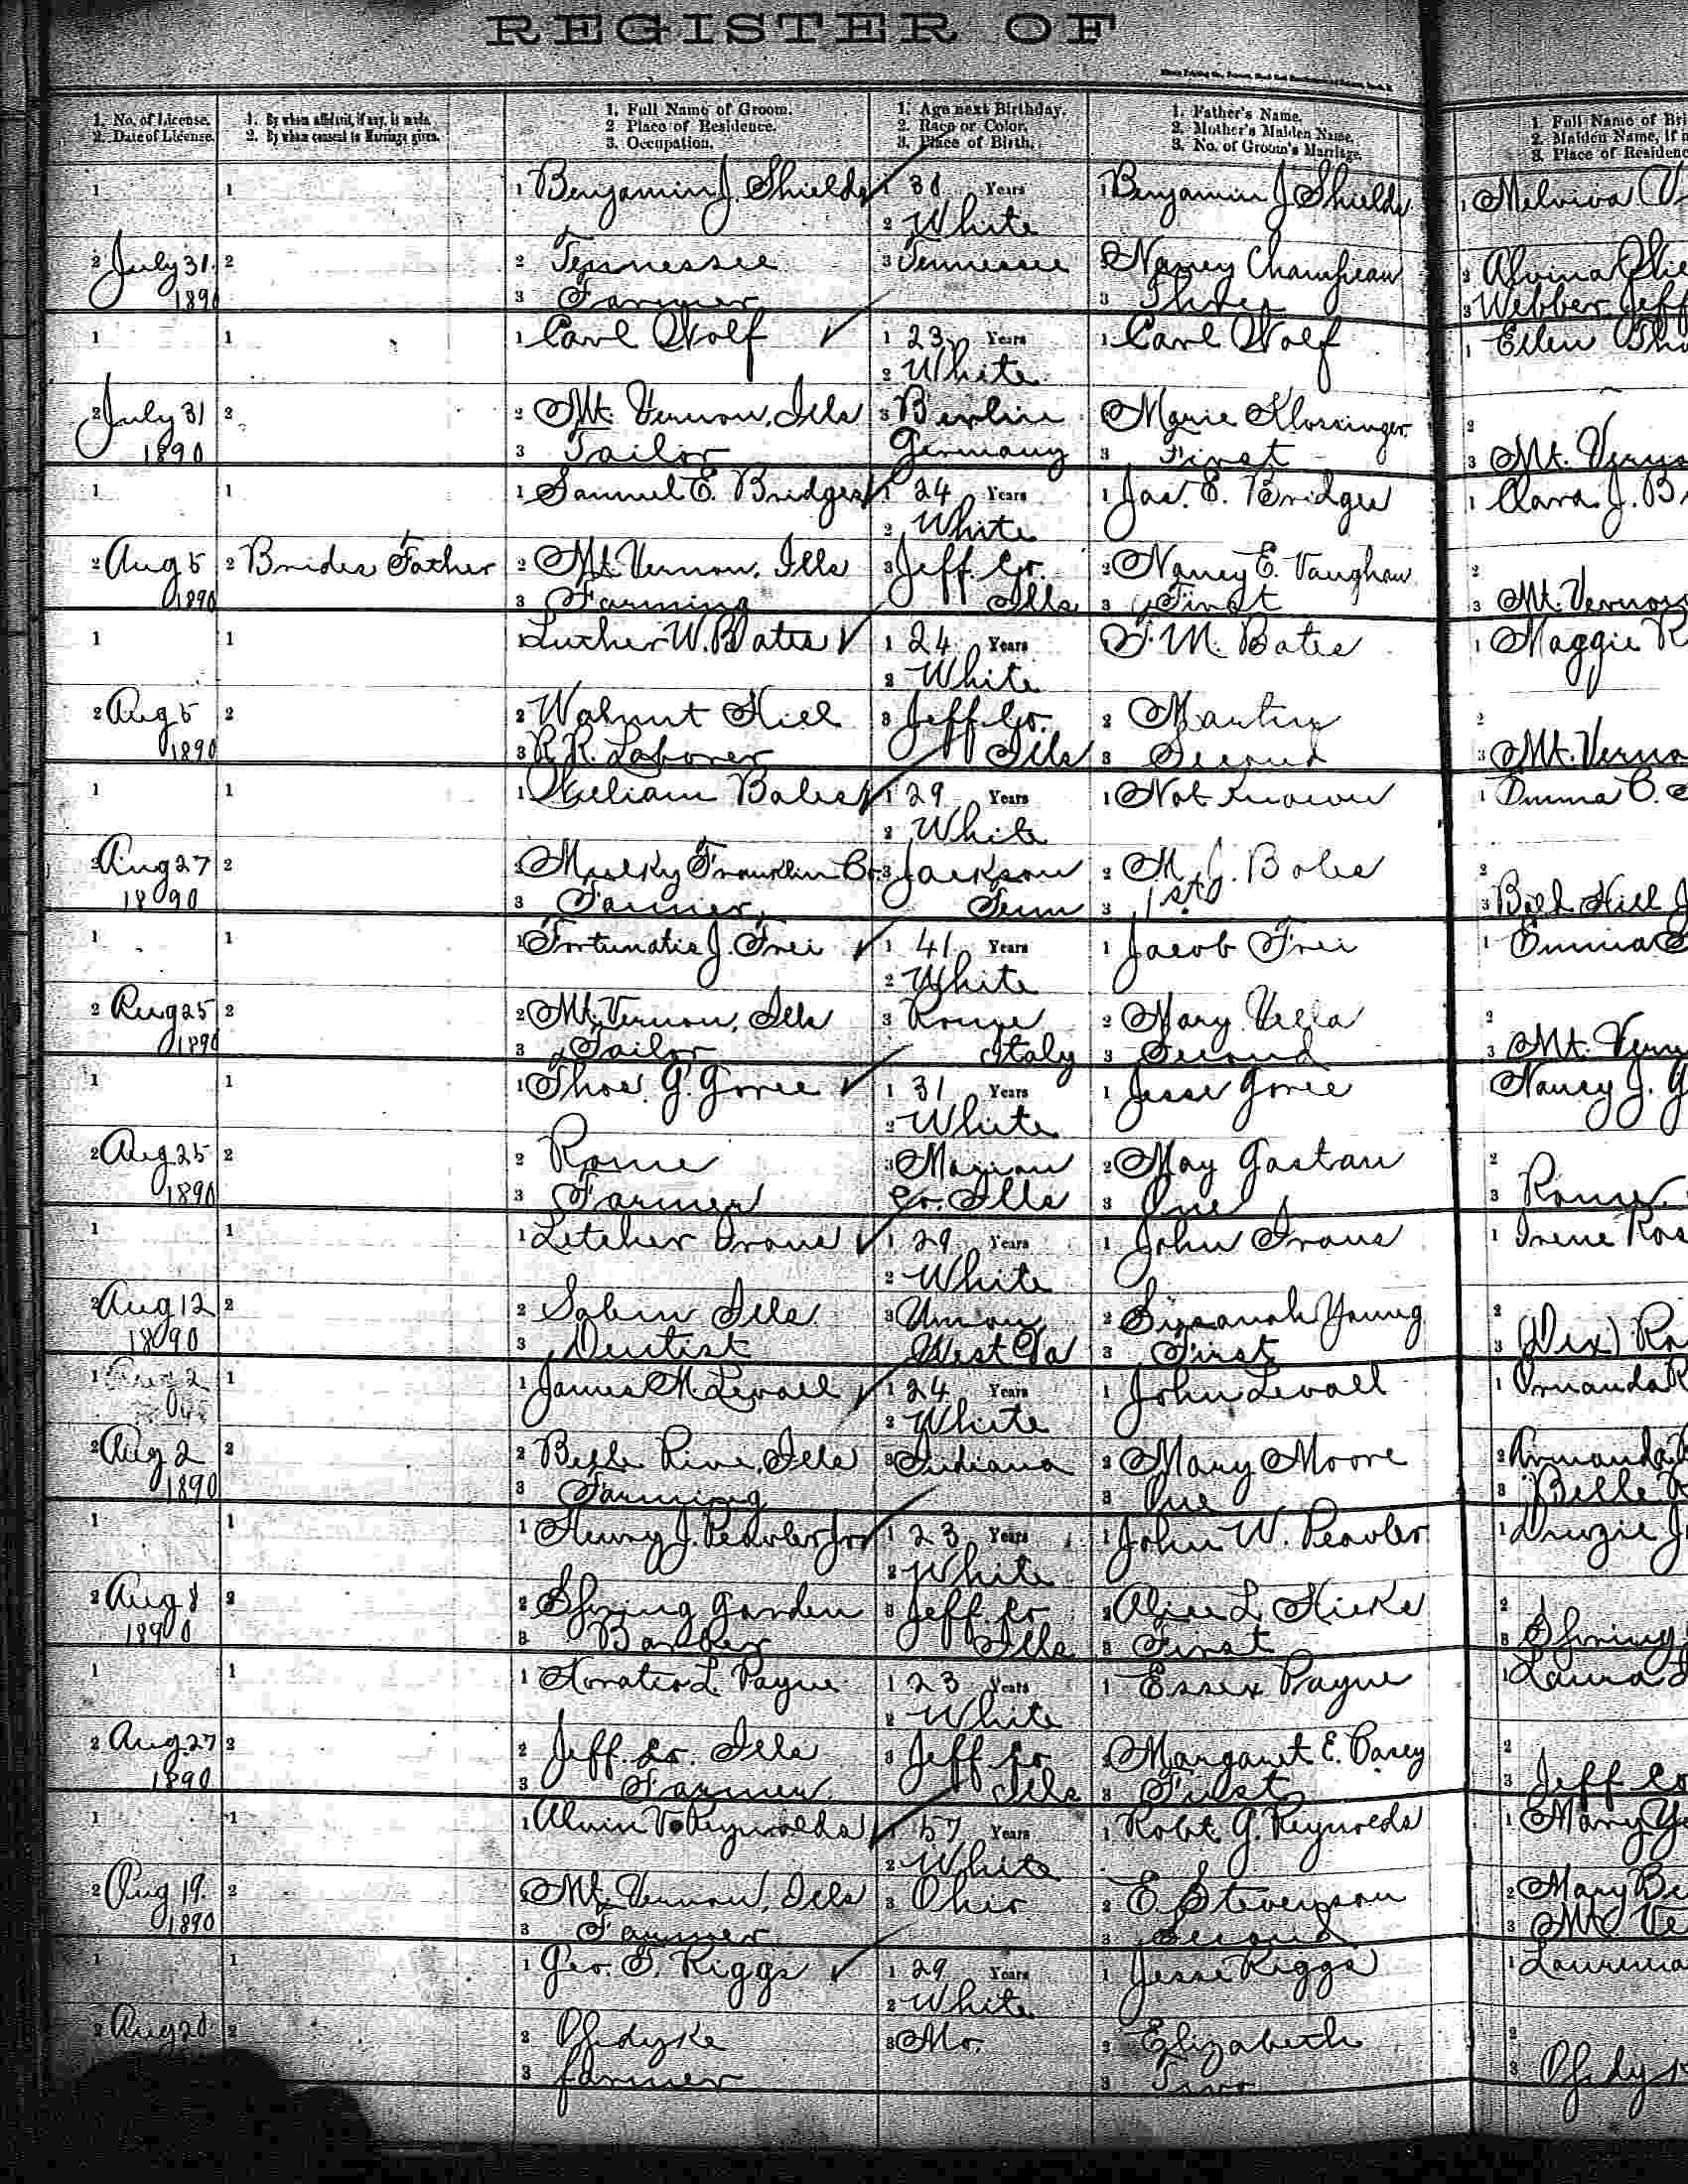 REGISTER OF
1. No. of License.
2. Date of License.
1. By whom affidavit, if any, is made.
2. By whom consent to Marriage given.
1. Full Name of Groom.
2 Place of Residence.
3. Occupation.
1. Age next Birthday.
2. Race or Color.
3. Place of Birth.
1. Father's Name.
2. Mother's Maiden Name.
3. No. of Groom's Marriage.
1. Full Name of Bri
2. Maiden Name, if
3. Place of Residenc
1 1 1 Benjamin J. Shields 1 Years 1 Benjamin J Shields 1 Melviva
2 White
2 July 31. 2 2 Tennessee 3 Tennessee 2 Nancy 2 Alvina Shie
1890 3 Farmer 3 Three 3 Webber Jeff
1 1 1 Carl Wolf 1 23 Years 1 Carl Wolf 1 Ellen Tho
2 White
2 July 31 2 2 Mt. Vernon, Ills 3 Berlin Marie Klossinger 2
1890 3 Tailor Germany 3 First 3 Mt. Verno
1 1 1 Samuel E. Bridges 1 24 Years 1 Jas. E. Bridges 1 Clara J. B
2 White
2 Aug 5 2 Brides Father 2 Mt. Vernon, Ills 3 Jeff. Co. 2 Nancy E. Vaughan 2
1890 3 Farming Ills 3 First 3 Mt. Vernon
1 1 1 Luther W. Bates 1 24 Years M. Bates 1 Maggie R
2 White
2 Aug 5 2 2 Walnut Hill 3 Jeff. Co. 2 Martin 2
1890 3 R.R. Laborer Ills 3 Second 3 Mt. Verno
1 1 1 William Boles 1 29 Years 1 Not Known 1 Emma C.
2 White
2 Aug 27 2 2 Franklin Co. 3 Jackson 2 M. J. Boles 2
1890 3 Farmer Tenn 3 1st 3 Hill J
1 1 1 Fortunatis J. Frei 1 41 Years 1 Jacob Frei 1 Emma
2 White
2 Aug 25 2 2 Mt. Vernon, Ills 3 Rome 2 Mary Vella 2
1890 3 Tailor Italy 3 Second 3 Mt. Vern
1 1 1 Thos. G. Goree 1 31 Years 1 Jesse Goree Nancy J. G
2 White
2 Aug 25 2 2 Rome 3 Marion 2 May Gastan 2
1890 3 Farmer Co. Ills 3 One 3 Rome,
1 1 1 Letcher Irons 1 29 Years 1 John Irons 1 Irene Ros
2 White
2 Aug 12 2 2 Ills. 3 Union 2 Young 2
1890 3 Dentist West Va 3 First 3 (Dix) Ro
1 1 1 James M Levall 1 24 Years 1 John Levall 1
2 White
2 Aug 2 2 2 Belle Rive, Ills 3 Indiana 2 Mary Moore 2 Armanda
1890 3 Farming 3 One 3 Belle R
1 1 1 Henry J. Peavler Jr 1 23 Years 1 John W. Peavler 1
2 White
2 Aug 8 2 2 Spring Garden 3 Jeff. Co 2 Alice L. Hicks 2
1890 3 Ills 3 First 3 Spring
1 1 1 Horatio L. Payne 1 23 Years 1 Essex Payne 1 Laura
2 White
2 Aug 27 2 2 Jeff. Co. Ills 3 Jeff Co 2 Margaret E. Casey 2
1890 3 Farmer Ills 3 First 3 Jeff Co
1 1 1 Alvin V. Reynolds 1 57 Years 1 Robt. G. Reynolds 1 Mary
2 White
2 Aug 19. 2 2 Mt. Vernon, Ills 3 Ohio 2 E. Stevenson 2 Mary Be
1890 3 Farmer 3 Second 3 Mt Ve
1 1 1 Geo. T. Riggs 1 29 Years 1 Jesse Riggs 1
2 White
2 Aug 20 2 2 Opdyke 3 Mo. 2 Elizabeth 2
3 farmer 3 Two 3 Opdyk